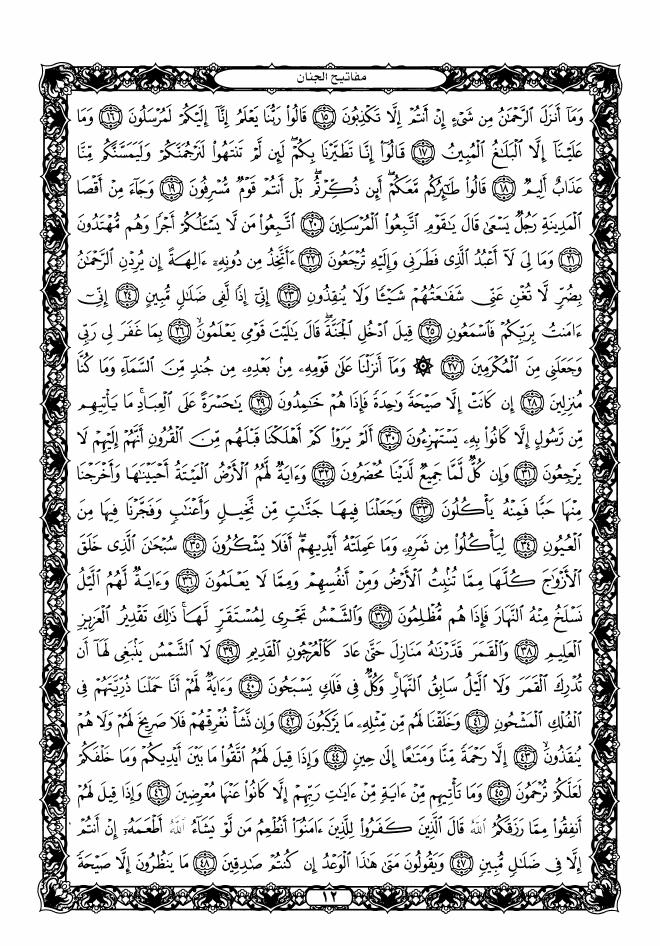 مفاتيح الجنان
وَمَآ أَنزَلَ ٱلرَّحْمَٰنُ مِن شَىْءٍ إِنْ أَنتُمْ إِلَّا تَكْذِبُونَ ﴿١٥﴾ قَالُوا۟ رَبُّنَا يَعْلَمُ إِنَّآ إِلَيْكُمْ لَمُرْسَلُونَ ﴿١٦﴾ وَمَا
عَلَيْنَآ إِلَّا ٱلْبَلَٰغُ ٱلْمُبِينُ ﴿١٧﴾ قَالُوٓا۟ إِنَّا تَطَيَّرْنَا بِكُمْ ۖ لَئِن لَّمْ تَنتَهُوا۟ لَنَرْجُمَنَّكُمْ وَلَيَمَسَّنَّكُم مِّنَّا
عَذَابٌ أَلِيمٌ ﴿١٨﴾ قَالُوا۟ طَٰٓئِرُكُم مَّعَكُمْ ۚ أَئِن ذُكِّرْتُم ۚ بَلْ أَنتُمْ قَوْمٌ مُّسْرِفُونَ ﴿١٩﴾ وَجَآءَ مِنْ أَقْصَا
ٱلْمَدِينَةِ رَجُلٌ يَسْعَىٰ قَالَ يَٰقَوْمِ ٱتَّبِعُوا۟ ٱلْمُرْسَلِينَ ﴿٢٠﴾ ٱتَّبِعُوا۟ مَن لَّا يَسْـَٔلُكُمْ أَجْرًا وَهُم مُّهْتَدُونَ
﴿٢١﴾ وَمَا لِىَ لَآ أَعْبُدُ ٱلَّذِى فَطَرَنِى وَإِلَيْهِ تُرْجَعُونَ ﴿٢٢﴾ ءَأَتَّخِذُ مِن دُونِهِۦٓ ءَالِهَةً إِن يُرِدْنِ ٱلرَّحْمَٰنُ
بِضُرٍّ لَّا تُغْنِ عَنِّى شَفَٰعَتُهُمْ شَيْـًٔا وَلَا يُنقِذُونِ ﴿٢٣﴾ إِنِّىٓ إِذًا لَّفِى ضَلَٰلٍ مُّبِينٍ ﴿٢٤﴾ إِنِّىٓ
ءَامَنتُ بِرَبِّكُمْ فَٱسْمَعُونِ ﴿٢٥﴾ قِيلَ ٱدْخُلِ ٱلْجَنَّةَ ۖ قَالَ يَٰلَيْتَ قَوْمِى يَعْلَمُونَ ﴿٢٦﴾ بِمَا غَفَرَ لِى رَبِّى
وَجَعَلَنِى مِنَ ٱلْمُكْرَمِينَ ﴿٢٧﴾ ۞ وَمَآ أَنزَلْنَا عَلَىٰ قَوْمِهِۦ مِنۢ بَعْدِهِۦ مِن جُندٍ مِّنَ ٱلسَّمَآءِ وَمَا كُنَّا
مُنزِلِينَ ﴿٢٨﴾ إِن كَانَتْ إِلَّا صَيْحَةً وَٰحِدَةً فَإِذَا هُمْ خَٰمِدُونَ ﴿٢٩﴾ يَٰحَسْرَةً عَلَى ٱلْعِبَادِ ۚ مَا يَأْتِيهِم
مِّن رَّسُولٍ إِلَّا كَانُوا۟ بِهِۦ يَسْتَهْزِءُونَ ﴿٣٠﴾ أَلَمْ يَرَوْا۟ كَمْ أَهْلَكْنَا قَبْلَهُم مِّنَ ٱلْقُرُونِ أَنَّهُمْ إِلَيْهِمْ لَا
يَرْجِعُونَ ﴿٣١﴾ وَإِن كُلٌّ لَّمَّا جَمِيعٌ لَّدَيْنَا مُحْضَرُونَ ﴿٣٢﴾ وَءَايَةٌ لَّهُمُ ٱلْأَرْضُ ٱلْمَيْتَةُ أَحْيَيْنَٰهَا وَأَخْرَجْنَا
مِنْهَا حَبًّا فَمِنْهُ يَأْكُلُونَ ﴿٣٣﴾ وَجَعَلْنَا فِيهَا جَنَّٰتٍ مِّن نَّخِيلٍ وَأَعْنَٰبٍ وَفَجَّرْنَا فِيهَا مِنَ
ٱلْعُيُونِ ﴿٣٤﴾ لِيَأْكُلُوا۟ مِن ثَمَرِهِۦ وَمَا عَمِلَتْهُ أَيْدِيهِمْ ۖ أَفَلَا يَشْكُرُونَ ﴿٣٥﴾ سُبْحَٰنَ ٱلَّذِى خَلَقَ
ٱلْأَزْوَٰجَ كُلَّهَا مِمَّا تُنۢبِتُ ٱلْأَرْضُ وَمِنْ أَنفُسِهِمْ وَمِمَّا لَا يَعْلَمُونَ ﴿٣٦﴾ وَءَايَةٌ لَّهُمُ ٱلَّيْلُ
نَسْلَخُ مِنْهُ ٱلنَّهَارَ فَإِذَا هُم مُّظْلِمُونَ ﴿٣٧﴾ وَٱلشَّمْسُ تَجْرِى لِمُسْتَقَرٍّ لَّهَا ۚ ذَٰلِكَ تَقْدِيرُ ٱلْعَزِيزِ
ٱلْعَلِيمِ ﴿٣٨﴾ وَٱلْقَمَرَ قَدَّرْنَٰهُ مَنَازِلَ حَتَّىٰ عَادَ كَٱلْعُرْجُونِ ٱلْقَدِيمِ ﴿٣٩﴾ لَا ٱلشَّمْسُ يَنۢبَغِى لَهَآ أَن
تُدْرِكَ ٱلْقَمَرَ وَلَا ٱلَّيْلُ سَابِقُ ٱلنَّهَارِ ۚ وَكُلٌّ فِى فَلَكٍ يَسْبَحُونَ ﴿٤٠﴾ وَءَايَةٌ لَّهُمْ أَنَّا حَمَلْنَا ذُرِّيَّتَهُمْ فِى
ٱلْفُلْكِ ٱلْمَشْحُونِ ﴿٤١﴾ وَخَلَقْنَا لَهُم مِّن مِّثْلِهِۦ مَا يَرْكَبُونَ ﴿٤٢﴾ وَإِن نَّشَأْ نُغْرِقْهُمْ فَلَا صَرِيخَ لَهُمْ وَلَا هُمْ
يُنقَذُونَ ﴿٤٣﴾ إِلَّا رَحْمَةً مِّنَّا وَمَتَٰعًا إِلَىٰ حِينٍ ﴿٤٤﴾ وَإِذَا قِيلَ لَهُمُ ٱتَّقُوا۟ مَا بَيْنَ أَيْدِيكُمْ وَمَا خَلْفَكُمْ
لَعَلَّكُمْ تُرْحَمُونَ ﴿٤٥﴾ وَمَا تَأْتِيهِم مِّنْ ءَايَةٍ مِّنْ ءَايَٰتِ رَبِّهِمْ إِلَّا كَانُوا۟ عَنْهَا مُعْرِضِينَ ﴿٤٦﴾ وَإِذَا قِيلَ لَهُمْ
أَنفِقُوا۟ مِمَّا رَزَقَكُمُ ٱللَّهُ قَالَ ٱلَّذِينَ كَفَرُوا۟ لِلَّذِينَ ءَامَنُوٓا۟ أَنُطْعِمُ مَن لَّوْ يَشَآءُ ٱللَّهُ أَطْعَمَهُۥٓ إِنْ أَنتُمْ
إِلَّا فِى ضَلَٰلٍ مُّبِينٍ ﴿٤٧﴾ وَيَقُولُونَ مَتَىٰ هَٰذَا ٱلْوَعْدُ إِن كُنتُمْ صَٰدِقِينَ ﴿٤٨﴾ مَا يَنظُرُونَ إِلَّا صَيْحَةً
١٢